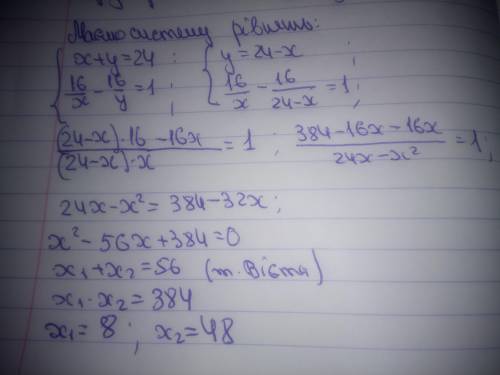 Маємо систему рівнянь:
{ x+y=24 ; { y=24-x ;
{ 16/x - 16/y = 1 ; { 16/x - 16/(24-x) = 1 ;
((24-x)·16 - 16x)/((24-x)·x) = 1 ; (384-16x-16x)/(24x-x²) = 1 ;
24x-x² = 384-32x ;
x²-56x+384=0
x₁+x₂=56 (т. Вієта)
x₁·x₂=384
x₁=8 ; x₂=48